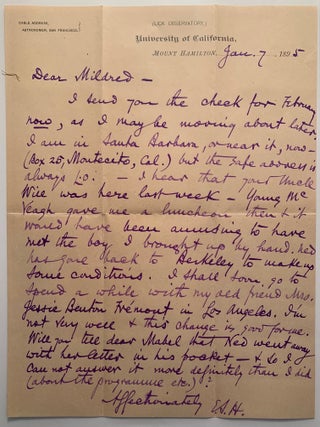 CABLE ADDRESS,
ASTRONOMER, SAN FRANCISCO.
(LICK OBSERVATORY)
University of California.
MOUNT HAMILTON, Jan. 7 1895
Dear Mildred –
I send you the check for February
now, as I may be moving about later
I am in Santa Barbara, or near it, now –
(Box 25, Montecito, Cal.) but the safe address is
always L.O. – I hear that your Uncle
Will was here last week – Young Mc
Veagh gave me a luncheon then & it
would have been amusing to have
met the boy I brought up by hand. Ned
has gone back to Berkeley to make up
some conditions. I shall soon go to
spend a while with my old friend Mrs.
Jessie Benton Fremont in Los Angeles. I'm
not very well & this change is good for me.
Will you tell dear Mabel that Ned went away
with her letter in his pocket – & so I
can not answer it more definitely than I did
(about the programme etc.)?
Affectionately E.S.H.